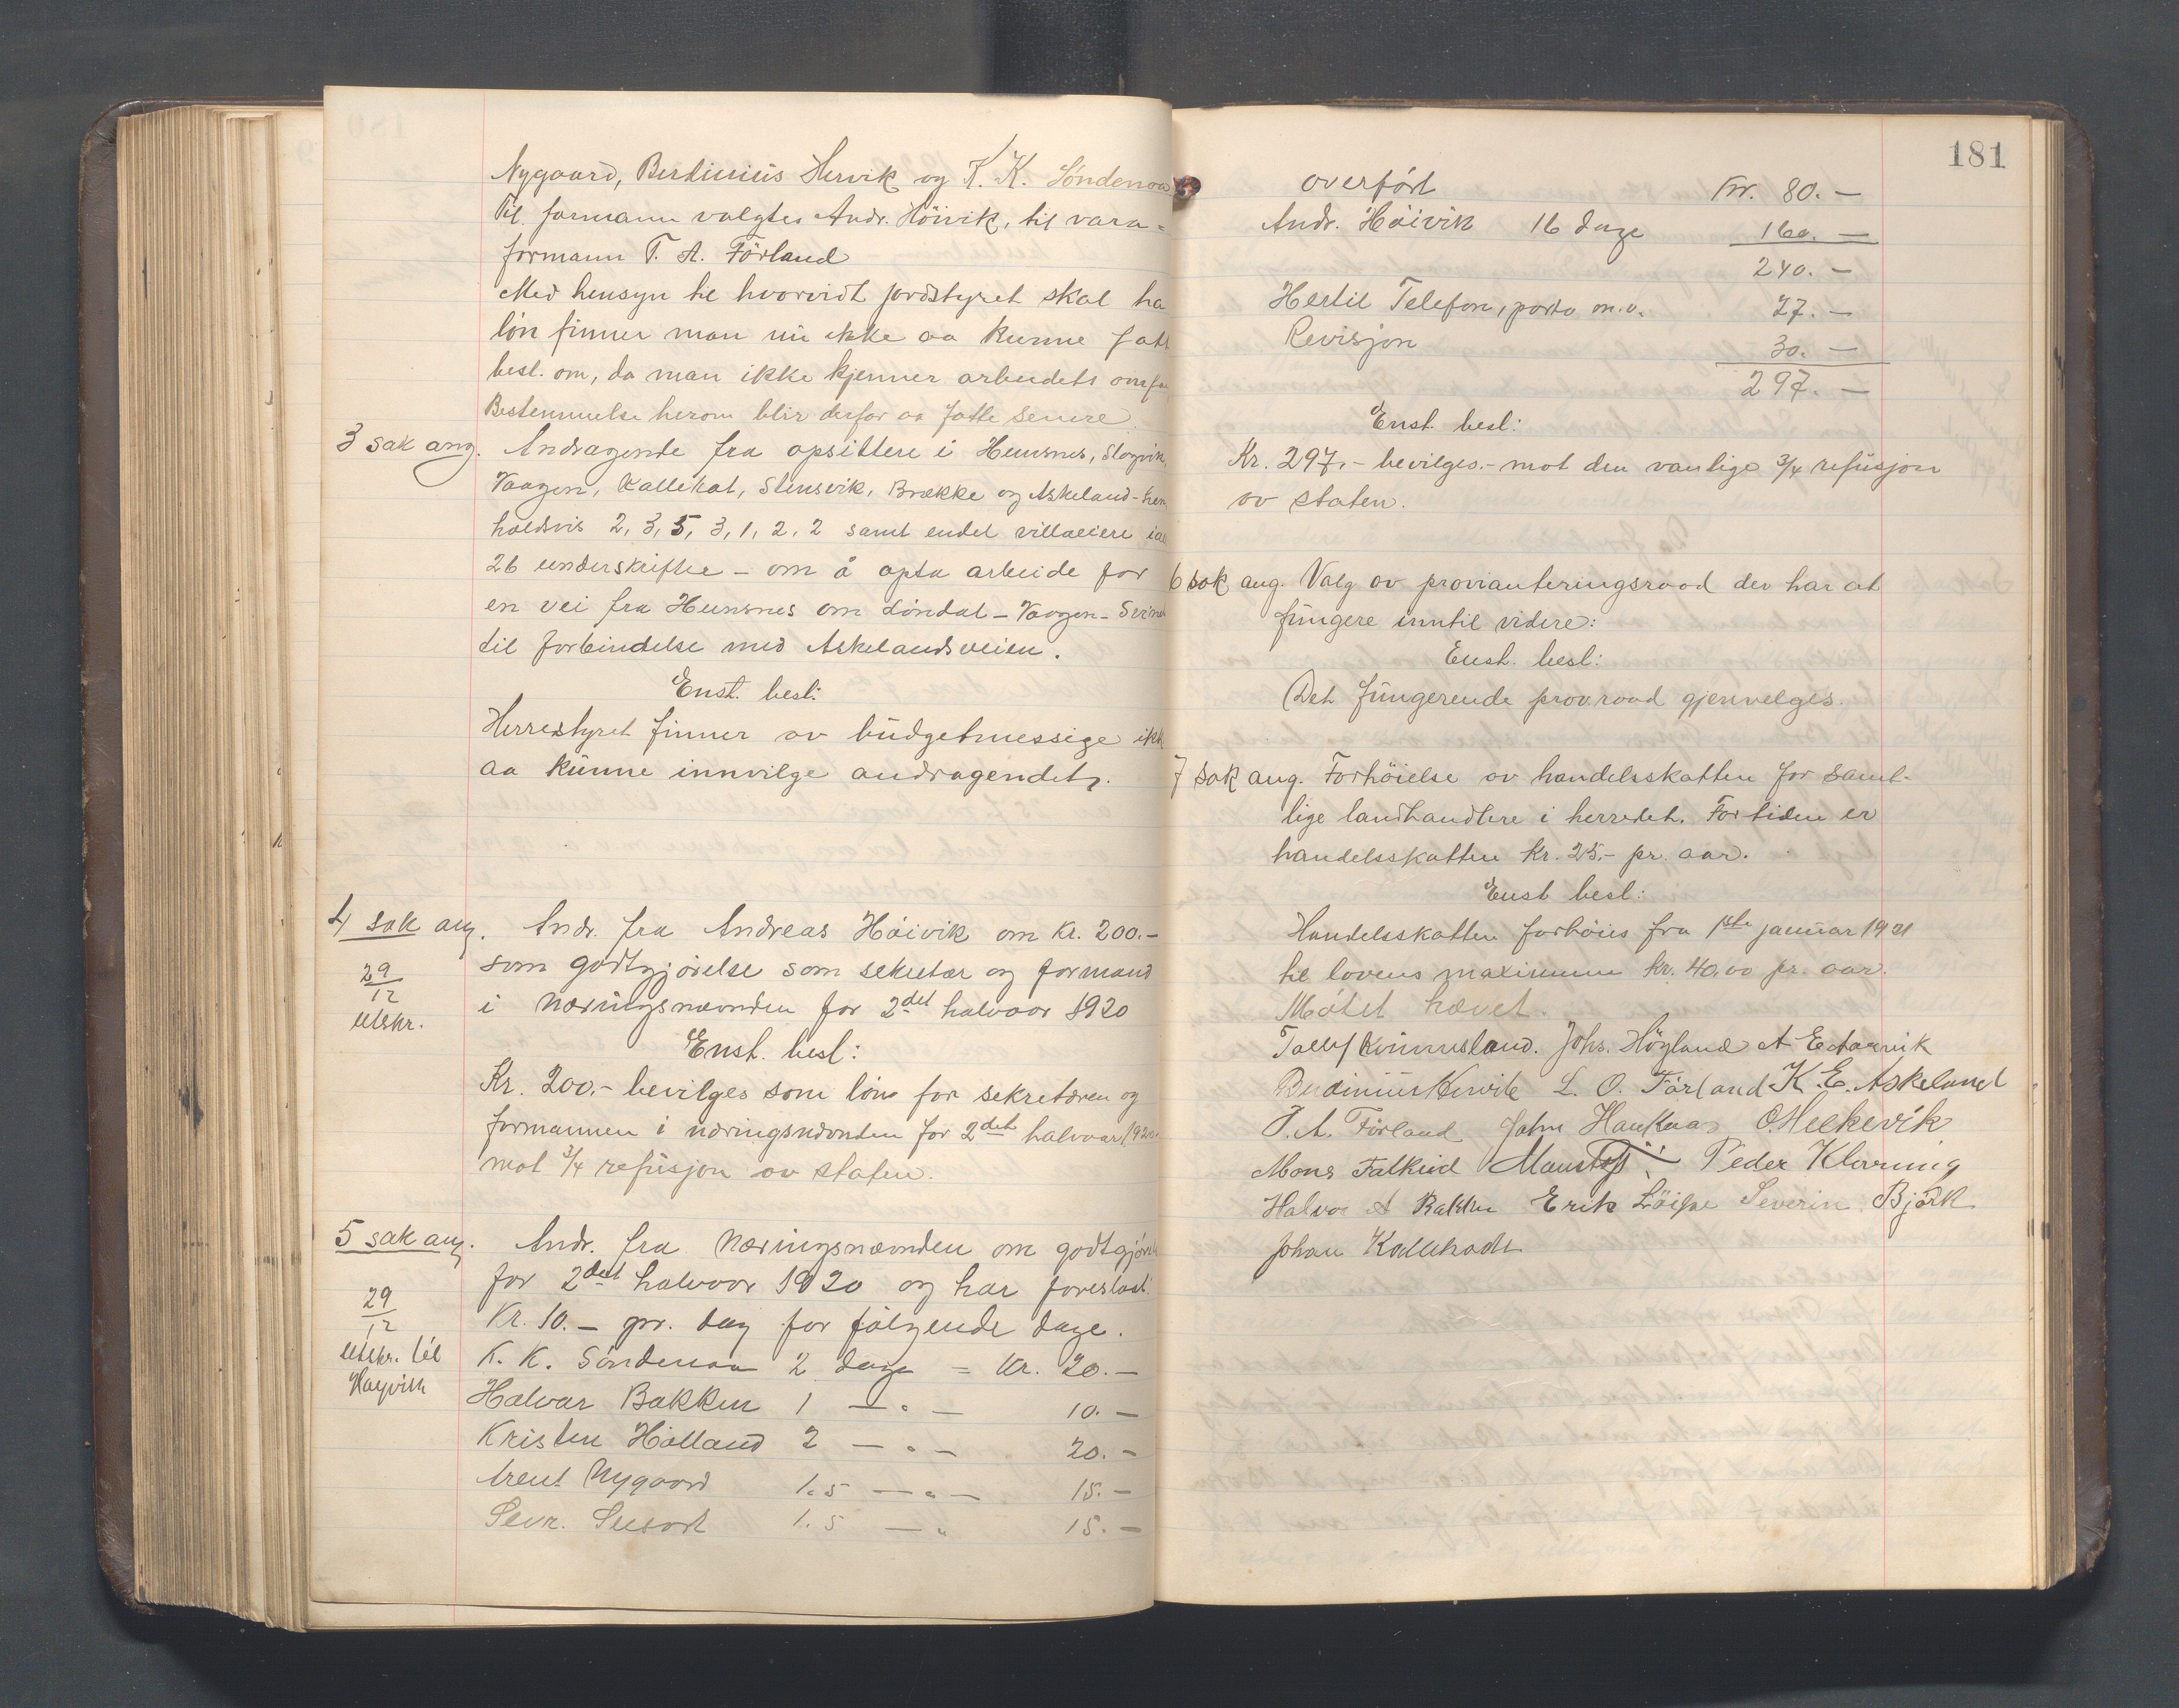 Nygaard, Berdinius Hervik og K. K. Söndenaa
Til formann valgtes Andr. Höivik, til vara-
formann T. A. Förland
Med hensyn til hvorvidt jordstyret skal ha
lön finner man nu ikke aa kunne fatt
besl. om, da man ikke kjenner arbeidets omfa
Bestemmelse herom blir derfor aa fatte senere.
3 sak ang. Andragende fra opsittere i Hemsnes, Slogvik,
Vaagen, Kallekat, Stensvik, Brække og Askeland - hen
holdsvis 2, 3, 5, 3, 1, 2, 2 samt endel villaeiere ial
26 underskrifter - om å opta arbeide for
en vei fra Hemsnes om Löndal - Vaagen -
til forbindelse med Askelandsveien.
Enst. besl:
Herrestyret finner av budgetmessige ikk
aa kunne innvilge andragendet.
4 sak ang. Andr. fra Andreas Höivik om Kr. 200.-
29/12
utskr.
som godtgjörelse som sekretær og formand
i Næringsnævnden for 2det halvaar 1920
Enst. besl:
Kr. 200.- bevilges som lön for sekretæren og
formannen i næringsnævnden for 2det halvaar 1920
mot 3/4 refusjon av staten.
5 sak ang. Andr. fra Næringsnævnden om godtgjörel
29/12
utskr. til
Høyvik
for 2det halvaar 1920 og har foreslaat
Kr. 10.- pr. dag for følgende dage.
K. K. Söndenaa 2 dage = Kr. 20.-
Halvar Bakken 1 - " - 10.-
Kristen Hölland 2 - " - 20.-
Arent Nygaard 1.5 - " - 15.-
Sevr. Susort 1.5 - " 15.-
181
overfört Kr. 80.-
Andr. Höivik 16 dage 160.-
240.-
Hertil Telefon, porto m.v. 27.-
Revisjon 30.-
297.-
Enst. besl:
Kr. 297.- bevilges.- mot den vanlige 3/4 refusjon
av staten.
6 sak ang. Valg av provianteringsraad der har at
fungere inntil videre:
Enst. besl:
Det fungerende prov.raad gjenvelges.
7 sak ang. Forhöielse av handelsskatten for samt-
lige landhandlere i herredet. For tiden er
handelsskatten Kr. 25.- pr. aar.
Enst besl:
Handelsskatten forhöies fra 1ste januar 1921
til lovens maximum kr. 40.00 pr. aar.
Mötet hævet.
Tollef Kinnesland. Johs. Höyland A E Aarvik
Berdinius Hervik L. O. Förland K. E. Askeland
T. A. Förland John Haukaas O. Helkevik
Mons Falkeid Peder Klovning
Halvor A Bakken Erik Severin Björk
Johan Kallekodt